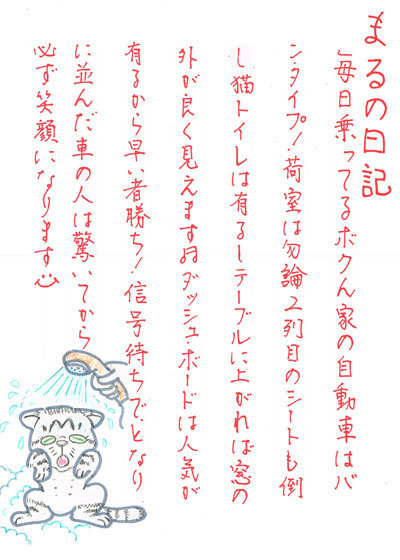 まるの日記
毎日乗ってるボクん家の自動車はバ
ン・タイプ!荷室は勿論2列目のシートも倒
し猫トイレは有るしテーブルに上がれば窓の
外が良く見えますヨダッシュ・ボードは人気が
有るから早い者勝ち!信号待ちでとなり
に並んだ車の人は驚いてから
必ず笑顔になります